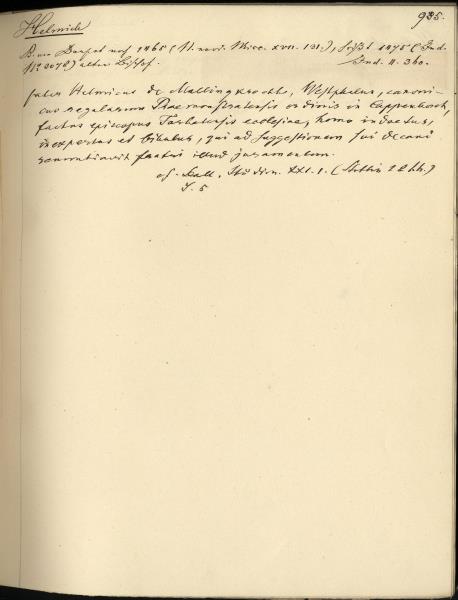 935.
Helmich
B. von Dorpat noch 1465 (M. Misc. XVII. 131.), heißt 1475 (Ind.
N: 2078) alter Bischof. Ind. II. 360.
frater Helmicus de Mallingkrodt, Westphalus, canoni-
cus regularium Praemonstratensis ordinis in Cappenberch,
factus episcopus Tarbatensis ecclesiae, homo indoctus,
inexpertus et bibulus, qui ad suggestionem sui decani
fratri illud juramentum.
cf. Stodien. XXI. 1. (Stettin)
S. 5